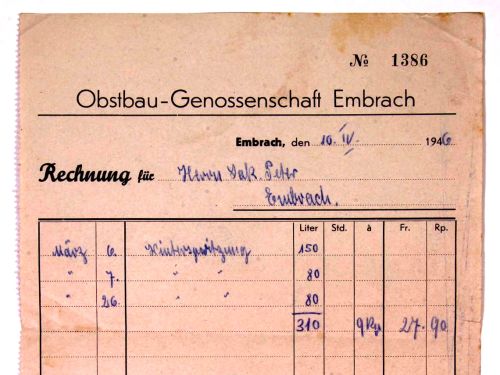 № 1386
Obstbau-Genossenschaft Embrach
Embrach, den 10. IV. 1946
Rechnung für Herrn Jak. Peter
Embrach.
Liter Std. à Fr. Rp.
März 6. Winterspritzung 150
" 7. " " 80
" 26. " " 80
310 9 Rp. 27. 90